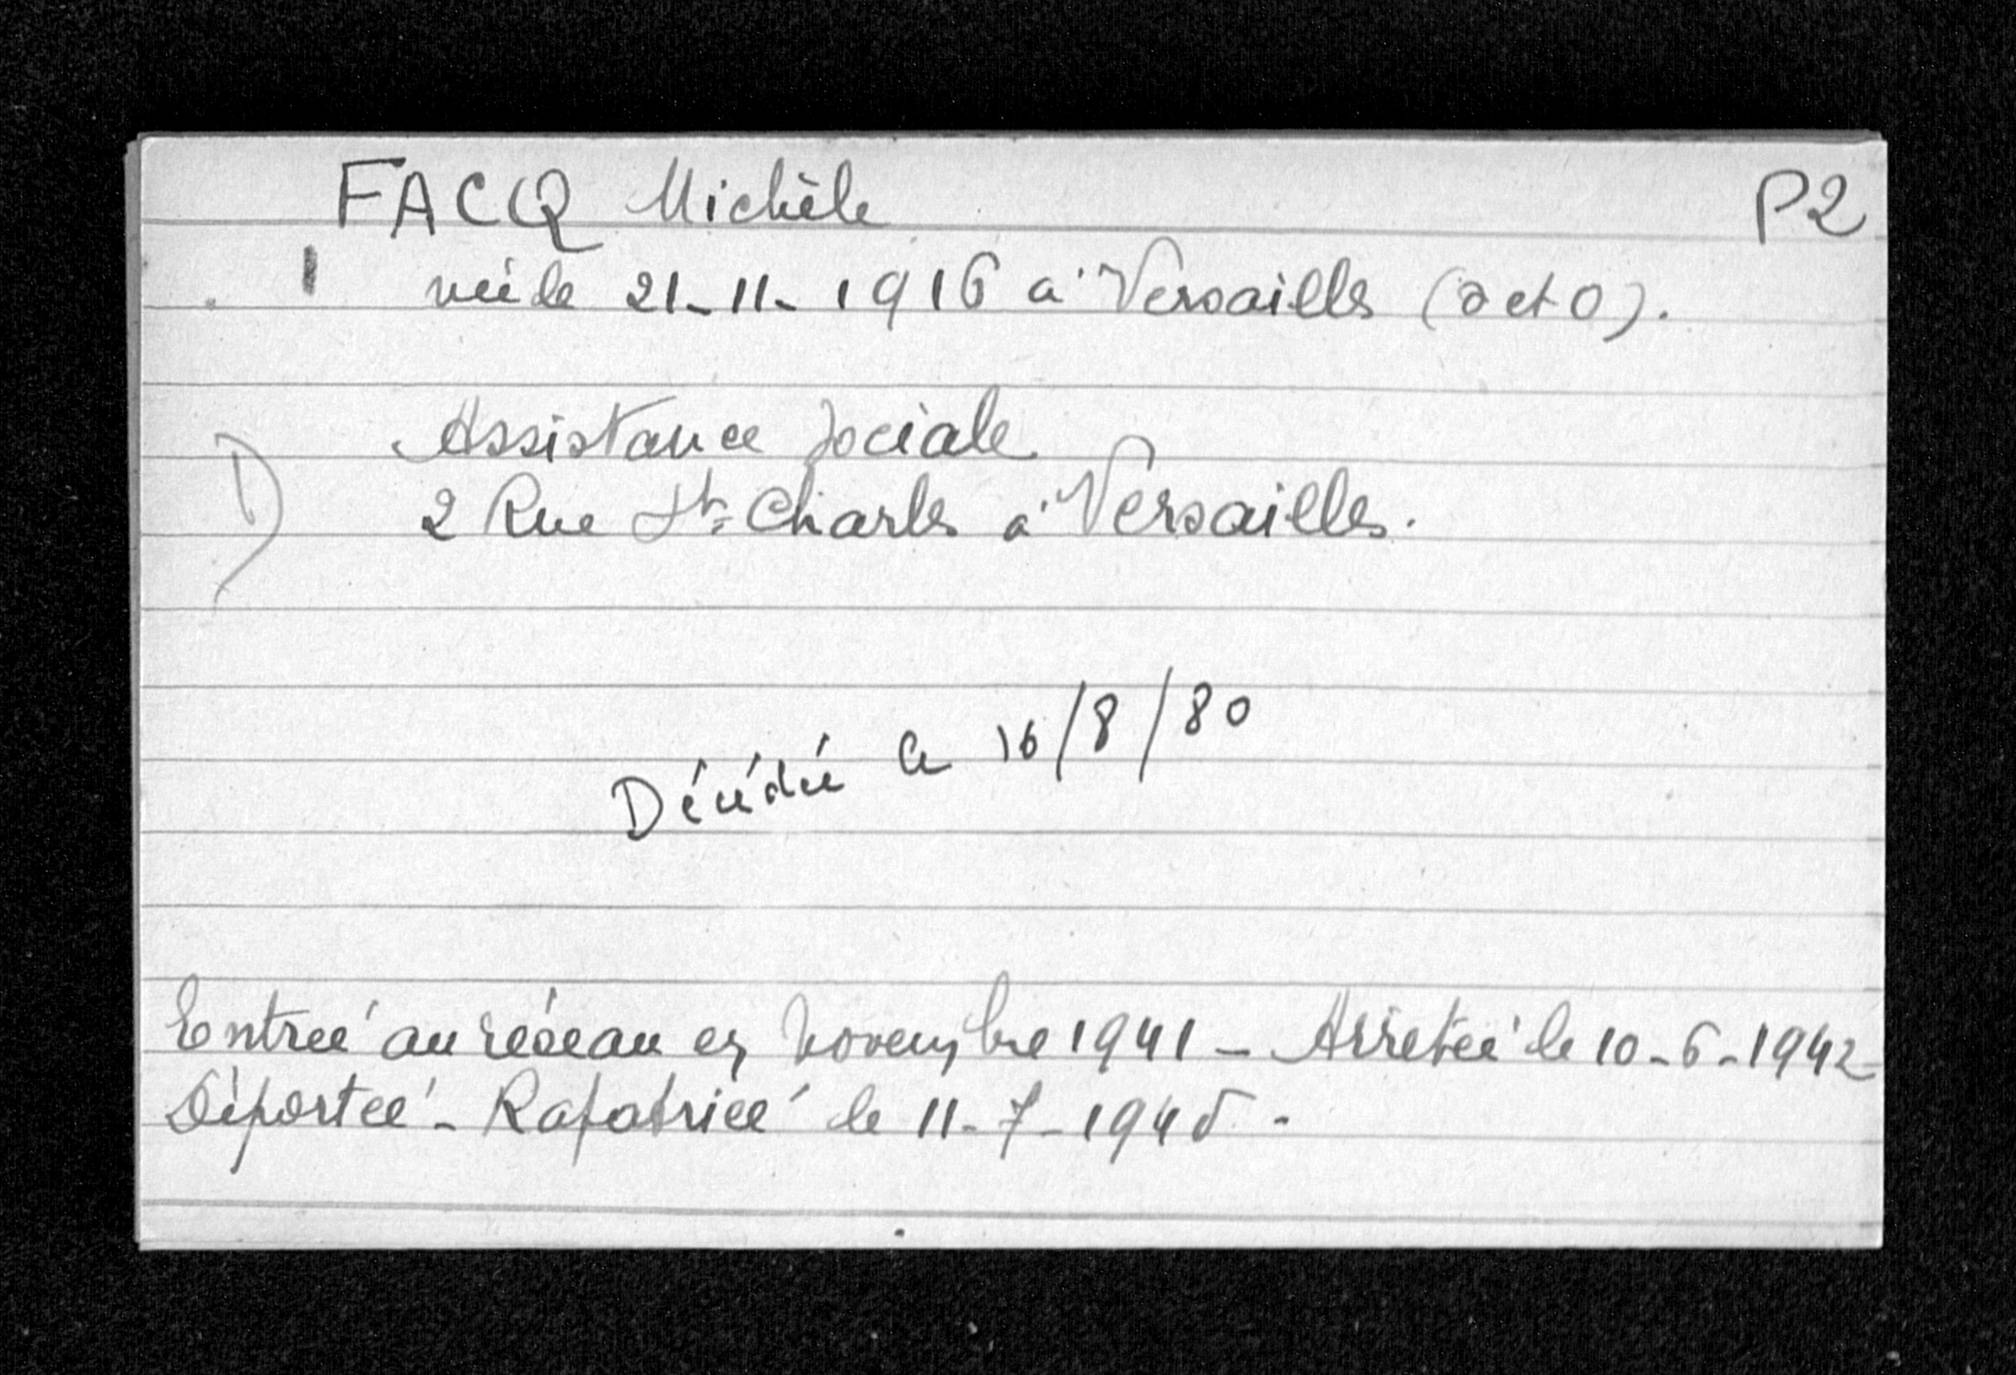 FACQ Michèle P2
née le 21-11-1916 à Versailles (S et O).
Assistance sociale
D) 2 Rue St Charles à Versailles.
Décédée le 16/8/80
Entrée au réseau en novembre 1941 - Arretée le 10-6-1942
Déportée - Rapatriée le 11-7-1945 -